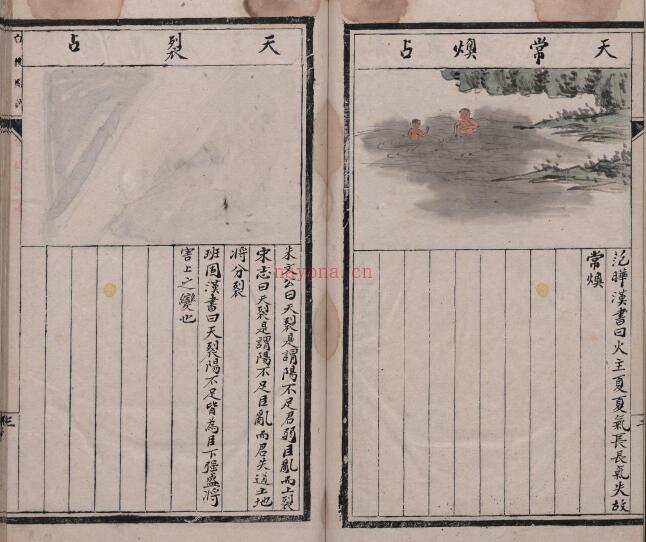 天常燠占
范曄漢書曰火主夏夏氣長長氣失故
常燠
天裂占
朱文公曰天裂是謂陽不足君弱臣亂而上裂
宋志曰天裂是謂陽不足臣亂而君失道土地
將分裂
班固漢書曰天裂陽不足皆為臣下強盛將
害上之變也
nayona.cn